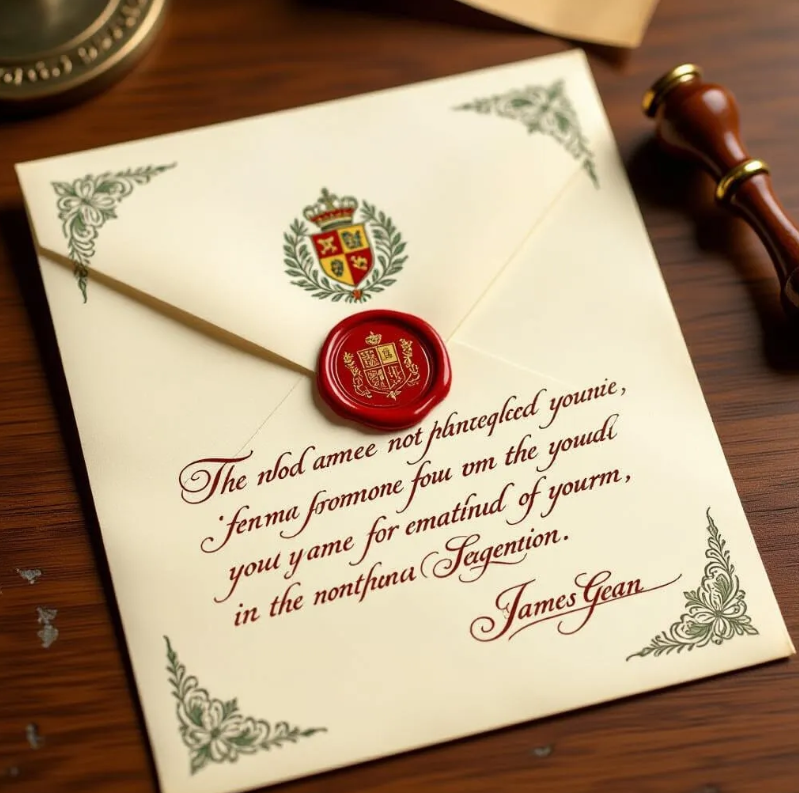 The nlod amee not phanteqlced younie,
fenma fromone fou vm the youdl
you yame for ematinud of yourm,
in the nontfuna Seagention.
James Gean